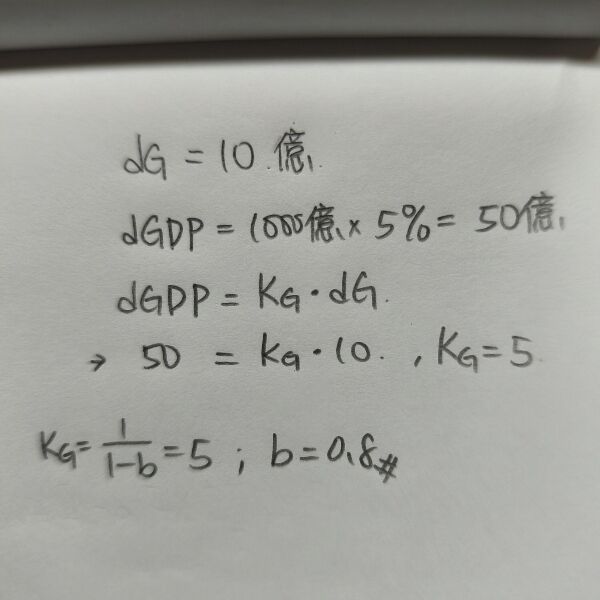 dG = 10 億
dGDP = 1000億 x 5% = 50億
dGDP = KG · dG
→ 50 = KG · 10 , KG = 5
KG = 1/(1-b) = 5 ; b = 0.8#